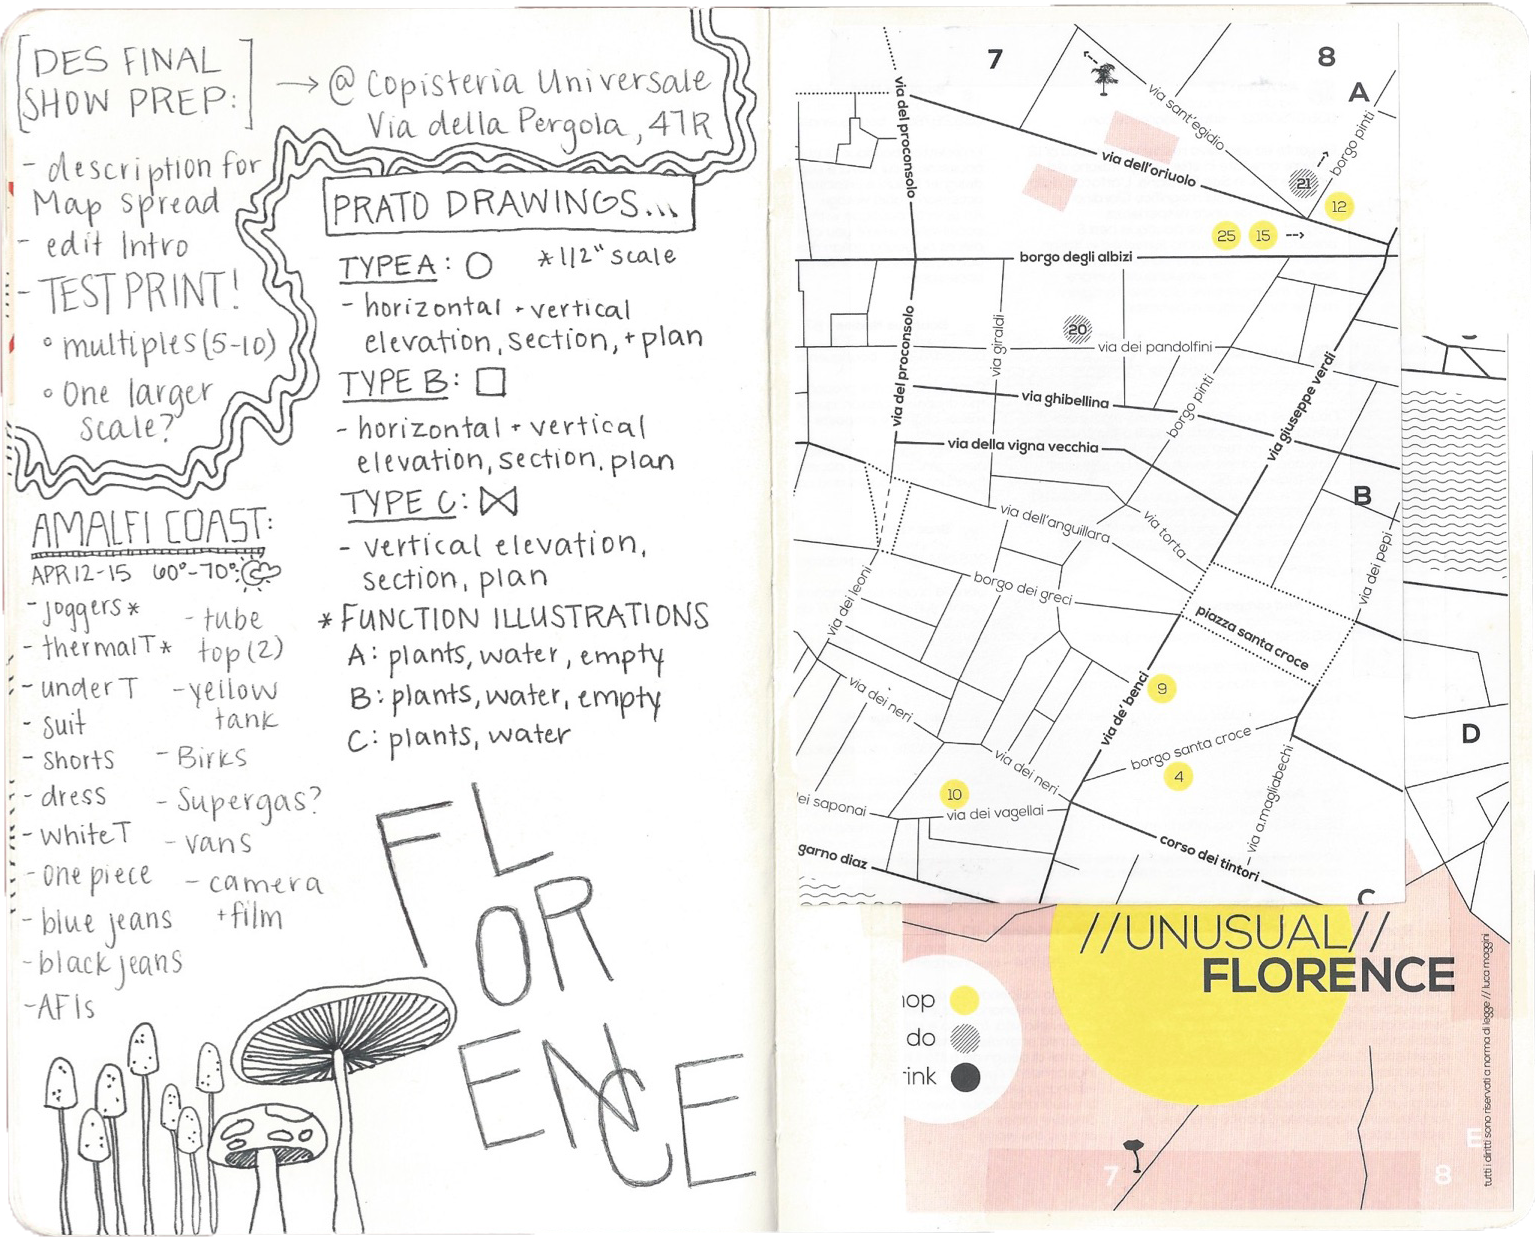 [DES FINAL
SHOW PREP:]
→ @ Copisteria Universale
Via della Pergola, 47R
- description for
Map spread
- edit Intro
- TEST PRINT!
° multiples (5-10)
° One larger
scale?
PRATO DRAWINGS...
TYPE A: ○ *1/2" scale
- horizontal + vertical
elevation, section, + plan
TYPE B: □
- horizontal + vertical
elevation, section, plan
TYPE C: ⋈
- vertical elevation,
section, plan
* FUNCTION ILLUSTRATIONS
A: plants, water, empty
B: plants, water, empty
C: plants, water
AMALFI COAST:
APR 12-15 60°-70°
- joggers *
- thermal T *
- under T
- suit
- shorts
- dress
- white T
- one piece
- blue jeans
- black jeans
- AF1s
- tube
top (2)
- yellow
tank
- Birks
- Supergas?
- vans
- camera
+ film
FLORENCE
7
8
A
via del proconsolo
via sant'egidio
borgo pinti
via dell'oriuolo
21
12
25
15
borgo degli albizi
via del proconsolo
via giraldi
20
via dei pandolfini
via ghibellina
borgo pinti
via giuseppe verdi
via della vigna vecchia
B
via dell'anguillara
via torta
via dei pepi
via dei leoni
borgo dei greci
piazza santa croce
via dei neri
9
via de' benci
D
borgo santa croce
via dei neri
4
10
via a.magliabechi
ei saponai
via dei vagellai
corso dei tintori
garno diaz
C
//UNUSUAL//
FLORENCE
hop
do
rink
7
8
E
tutti i diritti sono riservati a norma di legge // luca maggini